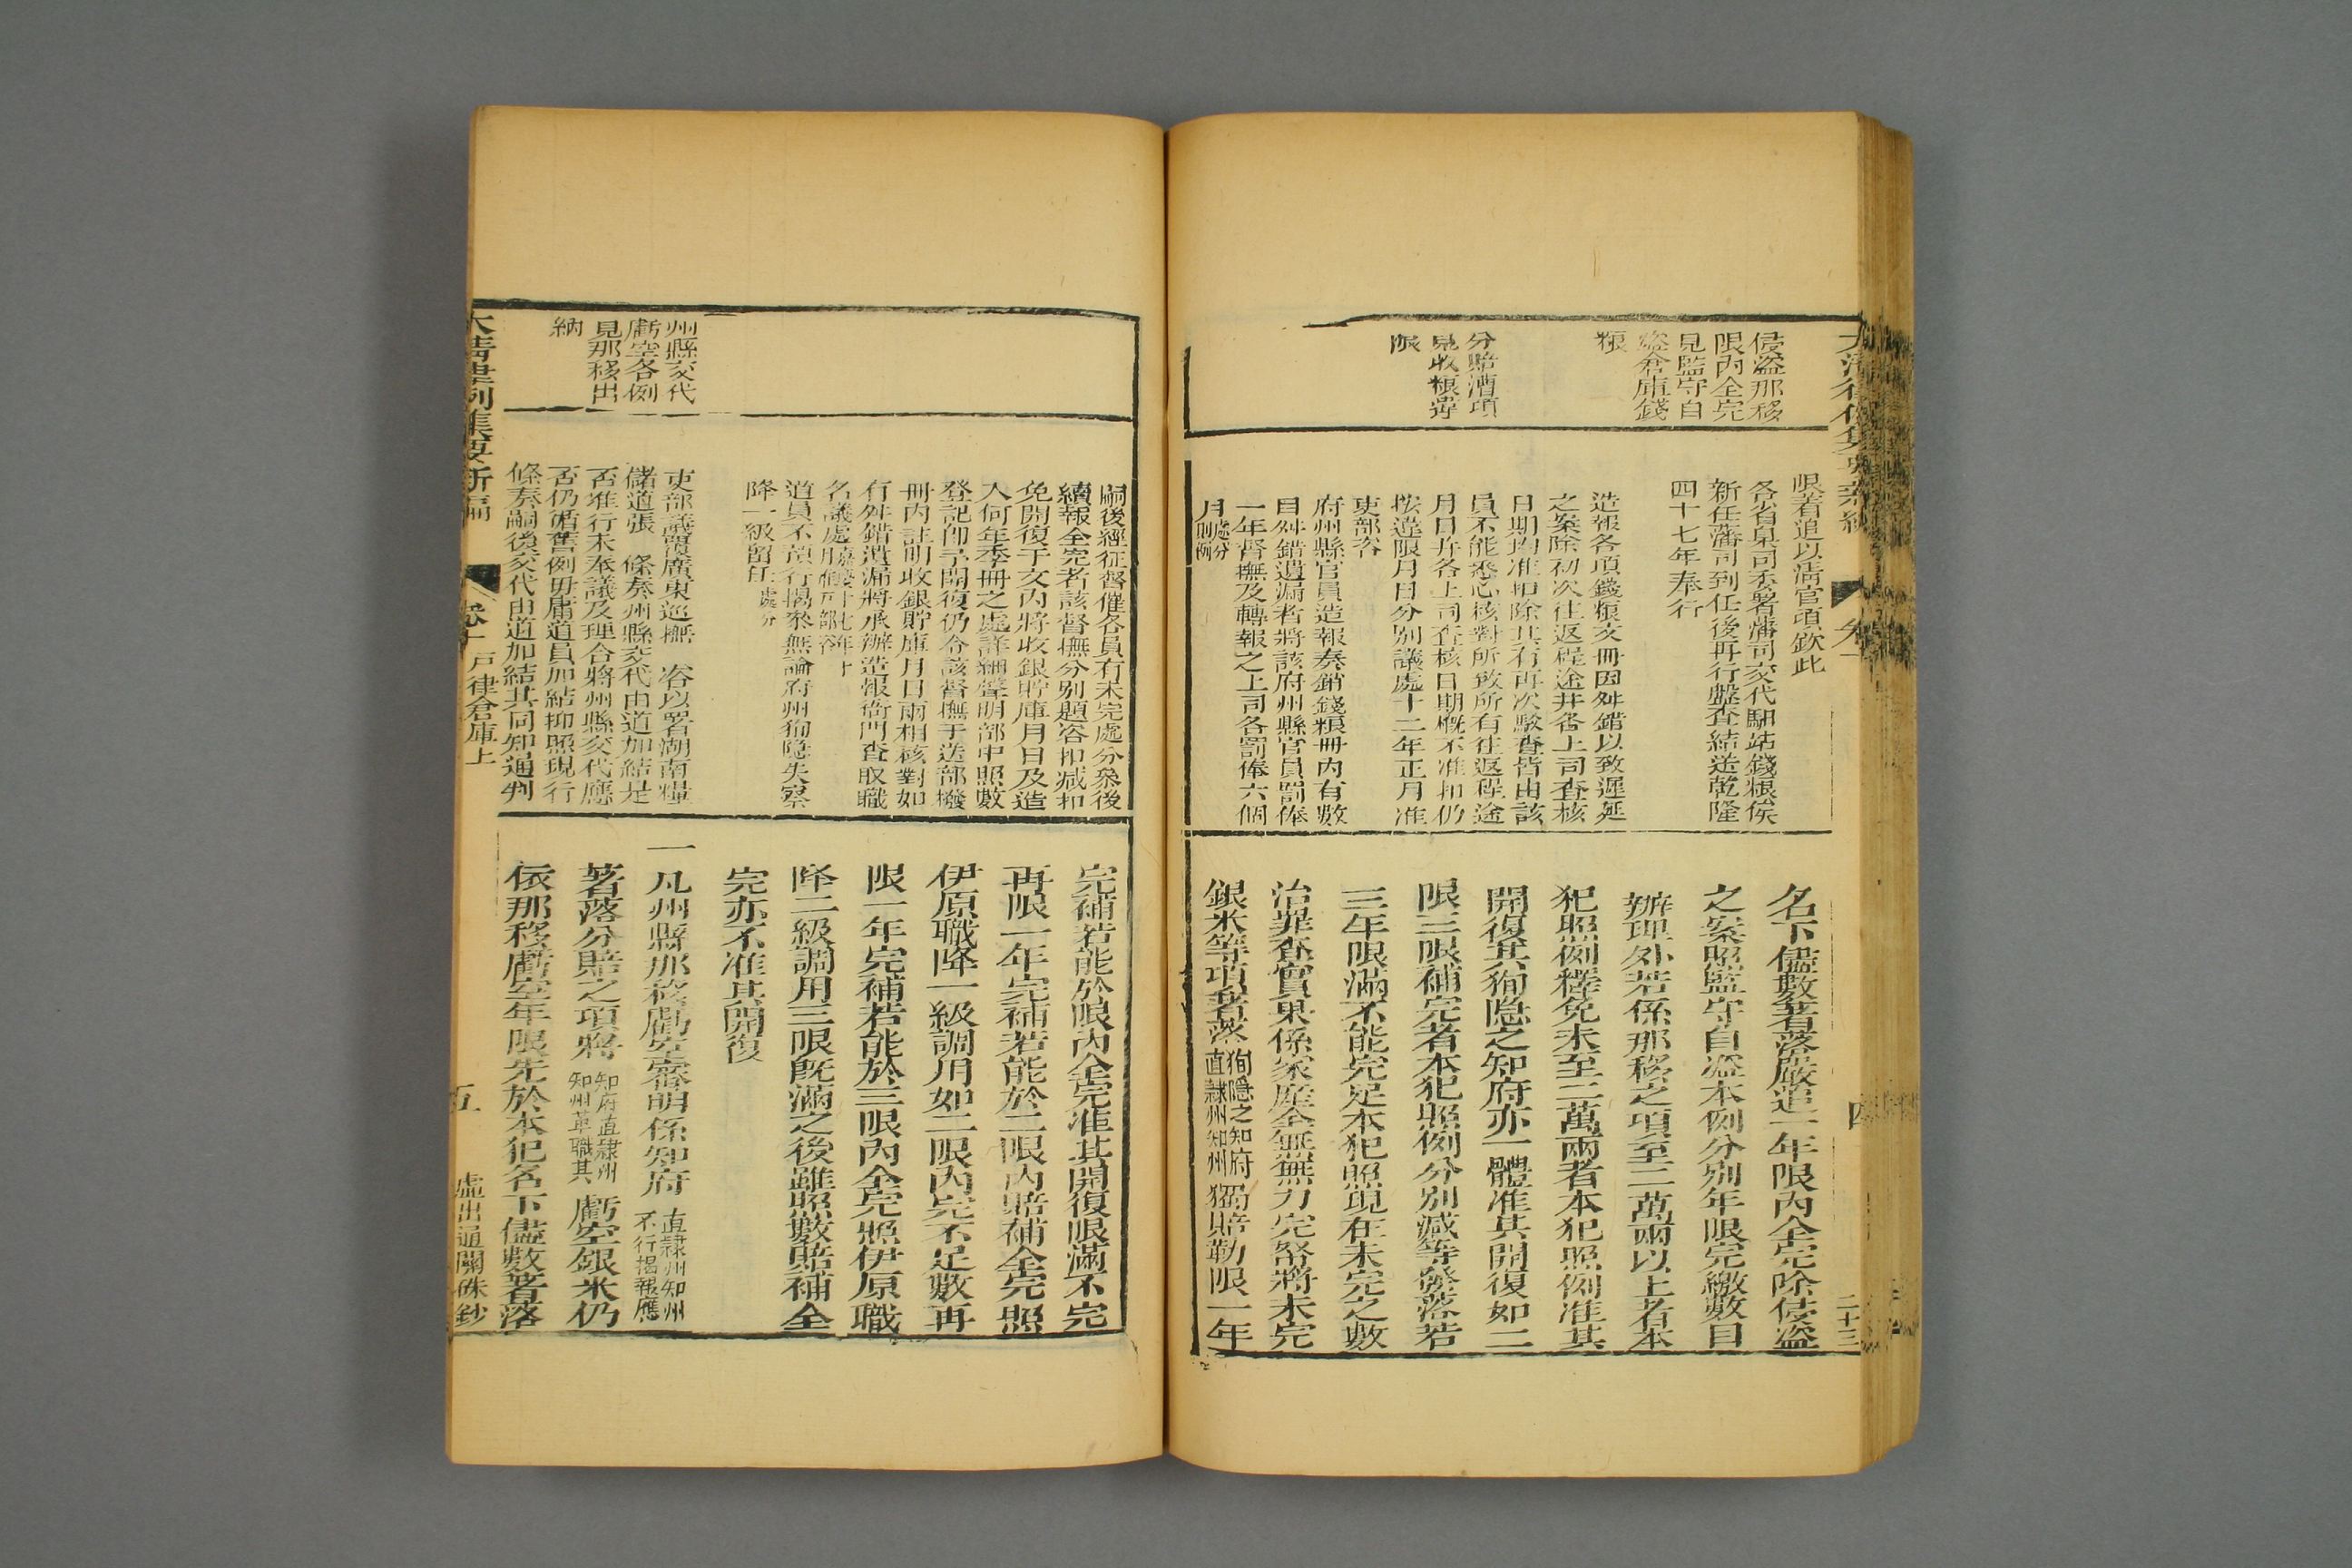 侵盜那移
限內全完
見監守自
盜倉庫錢
糧
分賠漕項
見收糧違
限
限著追以清官項欽此
各省臬司禾署藩司交代駟站錢糧俟
新任藩司到任後再行盤查結送乾隆
四十七年奉行
造報各項錢糧交冊因舛錯以致遲延
之案除初次往返程途幷各上司查核
日期均准扣除其有再次駁查皆由該
員不能悉心核對所致所有往返程途
月日幷各上司查核日期槪不准扣仍
按違限月日分別議處十二年正月准
吏部咨
府州縣官員造報奏銷錢糧冊內有數
目舛錯遺漏者將該府州縣官員罰俸
一年督撫及轉報之上司各罰俸六個
月處分則例
名下儘數著落嚴追一年限內全完除侵盜
之案照監守自盜本例分別年限完繳數目
辦理外若係那移之項至二萬兩以上者本
犯照例釋免未至二萬兩者本犯照例准其
開復其狥隱之知府亦一體准其開復如二
限三限補完者本犯照例分別減等發落若
三年限滿不能完足本犯照現在未完之數
治罪查實果係家産全無無力完帑將未完
銀米等項著落狥隱之知府直隸州知州獨賠勒限一年
四
二十三
嗣後經征督催各員有未完處分叅後
續報全完者該督撫分別題咨扣减扣
免開復于文內將收銀貯庫月日及造
入何年季冊之處詳細聲明部中照數
登記卽予開復仍令該督撫于送部撥
冊內註明收銀貯庫月日兩相核對如
有舛錯遺漏將承辦造報衙門查取職
名議處
道員不預行揭叅無論府州狥隱失察
降一級留任處分
州縣交代
虧空各例
見那移出
納
吏部議覆廣東巡撫 咨以署湖南糧
儲道張 條奏州縣交代由道加結是
否准行未奉議及理合將州縣交代應
否仍循舊例毋庸道員加結抑照現行
條奏嗣後交代由道加結其同知通判
完補若能於限內全完准其開復限滿不完
再限一年完補若能於二限內賠補全完照
伊原職降一級調用如二限內完不足數再
限一年完補若能於三限內全完照伊原職
降二級調用三限旣滿之後雖照數賠補全
完亦不准其開復
一凡州縣那移虧空審明係知府直隸州知州不行揭報應
著落分賠之項將知府直隸州知州革職其虧空銀米仍
依那移虧空年限先於本犯名下儘數著落
大清律例集要新編 卷十 戶律倉庫上 五 虛出通關硃鈔